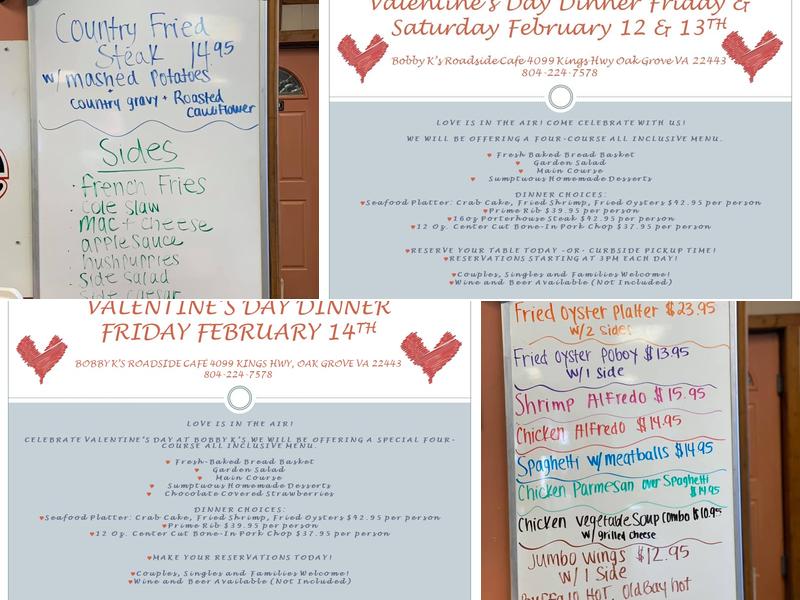 Country Fried
Steak 14.95
w/ mashed potatoes
country gravy + Roasted
cauliflower
Sides
· french Fries
· cole slaw
mac + cheese
applesauce
hushpuppies
· side salad
side caesar
Valentine's Day Dinner Friday &
Saturday February 12 & 13TH
Bobby K's Roadside Cafe 4099 Kings Hwy Oak Grove VA 22443
804-224-7578
LOVE IS IN THE AIR! COME CELEBRATE WITH US!
WE WILL BE OFFERING A FOUR-COURSE ALL INCLUSIVE MENU.
♥ Fresh Baked Bread Basket
♥ Garden Salad
♥ Main Course
♥ Sumptuous Homemade Desserts
DINNER CHOICES:
♥Seafood Platter: Crab Cake, Fried Shrimp, Fried Oysters $42.95 per person
♥Prime Rib $39.95 per person
♥16oz Porterhouse Steak $42.95 per person
♥12 Oz. Center Cut Bone-In Pork Chop $37.95 per person
♥RESERVE YOUR TABLE TODAY -OR- CURBSIDE PICKUP TIME!
♥RESERVATIONS STARTING AT 3PM EACH DAY!
♥Couples, Singles and Families Welcome!
♥Wine and Beer Available (Not Included)
VALENTINE'S DAY DINNER
FRIDAY FEBRUARY 14TH
BOBBY K'S ROADSIDE CAFÉ 4099 KINGS HWY, OAK GROVE VA 22443
804-224-7578
LOVE IS IN THE AIR!
CELEBRATE VALENTINE'S DAY AT BOBBY K'S. WE WILL BE OFFERING A SPECIAL FOUR-
COURSE ALL INCLUSIVE MENU.
♥ Fresh-Baked Bread Basket
♥ Garden Salad
♥ Main Course
♥ Sumptuous Homemade Desserts
♥ Chocolate Covered Strawberries
DINNER CHOICES:
♥Seafood Platter: Crab Cake, Fried Shrimp, Fried Oysters $42.95 per person
♥Prime Rib $39.95 per person
♥12 Oz. Center Cut Bone-In Pork Chop $37.95 per person
♥MAKE YOUR RESERVATIONS TODAY!
♥Couples, Singles and Families Welcome!
♥Wine and Beer Available (Not Included)
Fried Oyster Platter $23.95
w/2 sides
Fried Oyster poboy $13.95
w/1 side
Shrimp Alfredo $15.95
Chicken Alfredo $14.95
Spaghetti w/meatballs $14.95
Chicken Parmesan over Spaghetti
$14.95
Chicken vegetable soup combo $10.95
w/ grilled cheese
Jumbo wings $12.95
w/ 1 side
Buffalo HOT, Old Bay hot